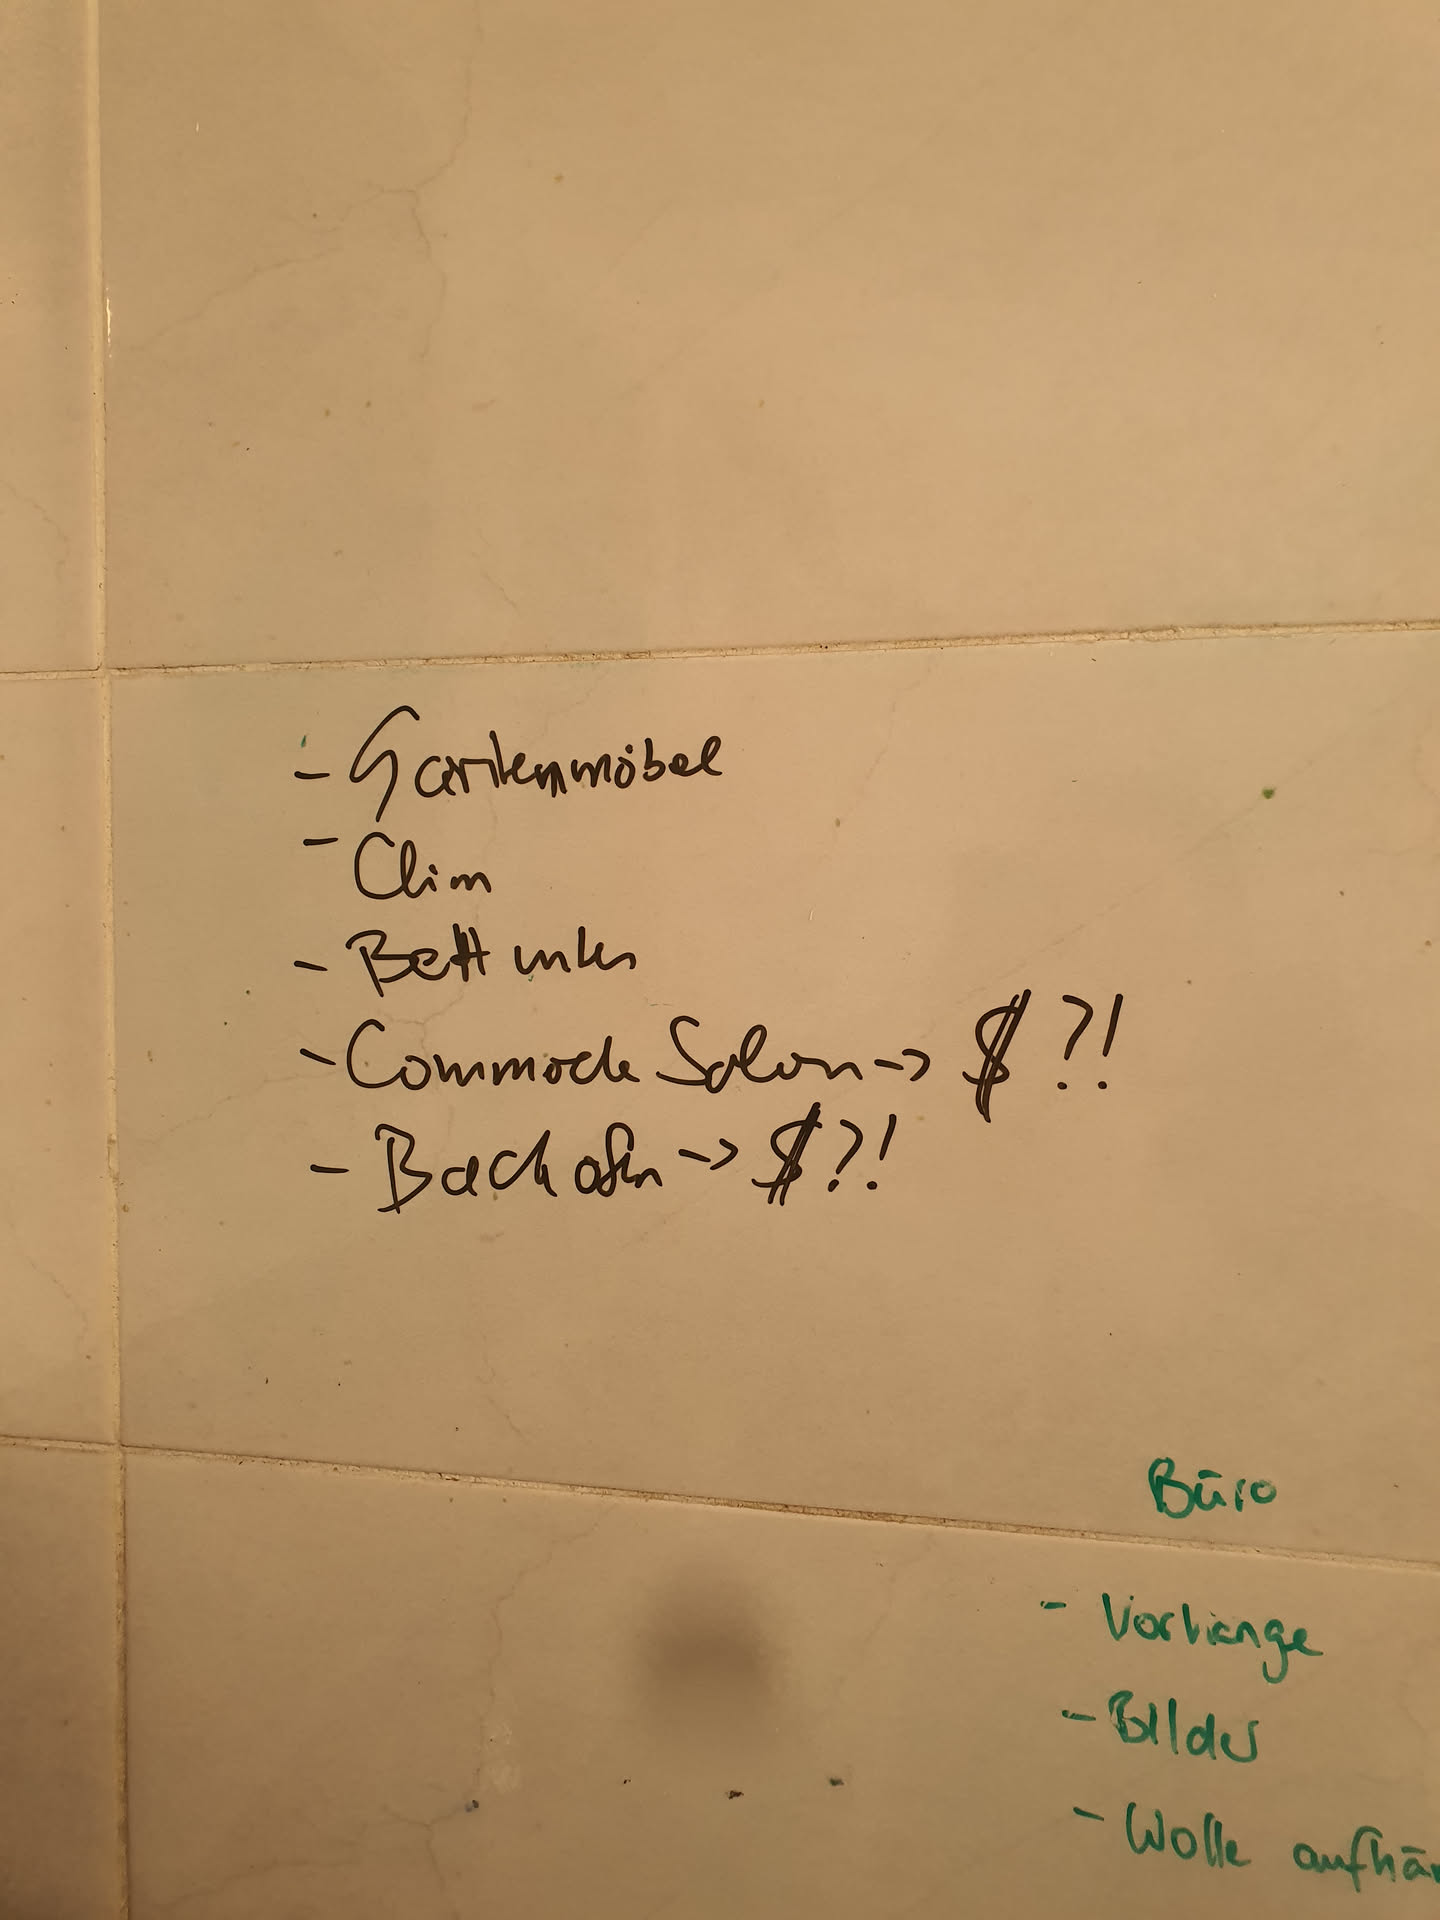 - Gartenmöbel
- Clim
- Bett unten
- Commode Salon -> $ ?!
- Backofen -> $ ?!
Büro
- Vorhänge
- Bilder
- Wolle aufhän